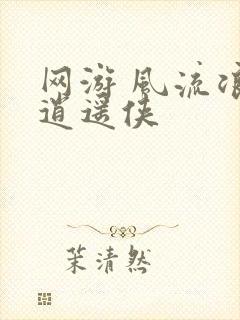 网游风流
逍遥侠
茉清然